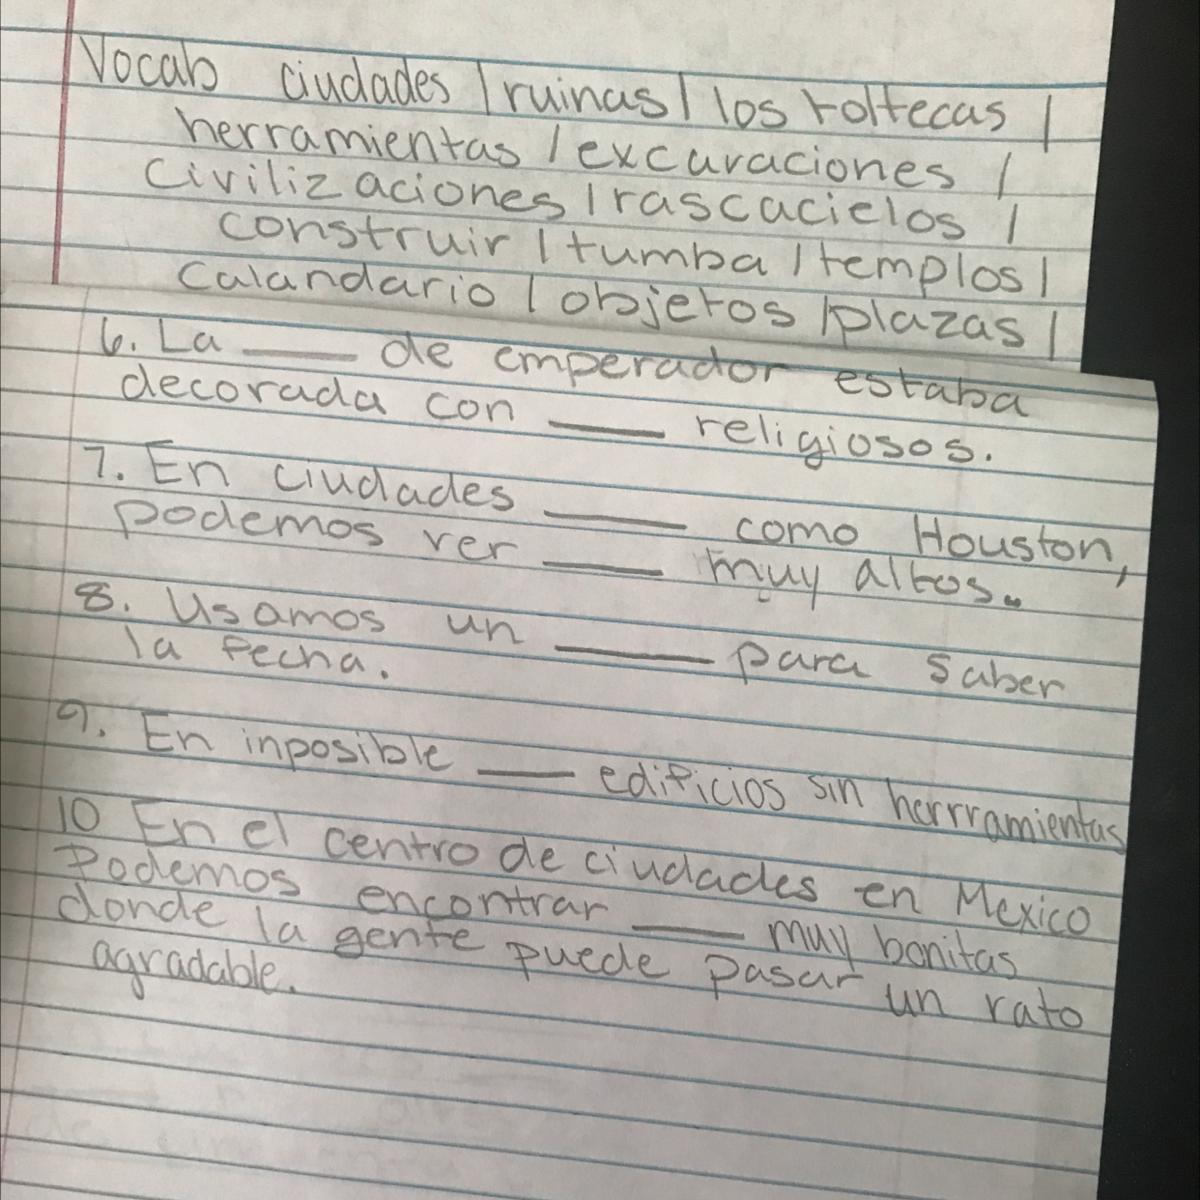 Vocab ciudades | ruinas | los toltecas |
herramientas | excavaciones |
Civilizaciones | rascacielos |
construir | tumba | templos |
Calandario | objetos | plazas |
6. La ____ de emperador estaba
decorada con ____ religiosos.
7. En ciudades ____ como Houston,
podemos ver ____ muy altos.
8. Usamos un ____ para saber
la fecha.
9. En inposible ____ edificios sin herrramientas
10 En el centro de ciudades en Mexico
Podemos encontrar ____ muy bonitas
donde la gente puede pasar un rato
agradable.